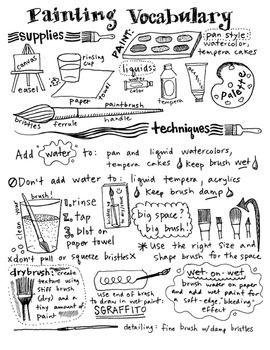 Painting Vocabulary
supplies
PAINT:
pan style:
watercolor,
tempera cakes
canvas
easel
rinsing
cup
paper
towel
liquids:
water
color
tempera
acrylic
Palette
bristles
ferrule
paintbrush
handle
techniques
Add water to: pan and liquid watercolors,
tempera cakes keep brush wet
Don't add water to: liquid tempera, acrylics
keep brush damp
brush!
1. rinse
2. tap
3. blot on
paper towel
big space:
big brush
*Use the right size and
shape brush for the space
x don't pull or squeeze bristles x
drybrush: create
texture using
stiff brush
(dry) and a
tiny amount of
paint
use end of brush
to draw in wet paint:
SGRAFFITO
wet on wet
brush water on paper
and add wet paint for
a soft-edge, "bleeding"
effect
detailing: fine brush w/damp bristles